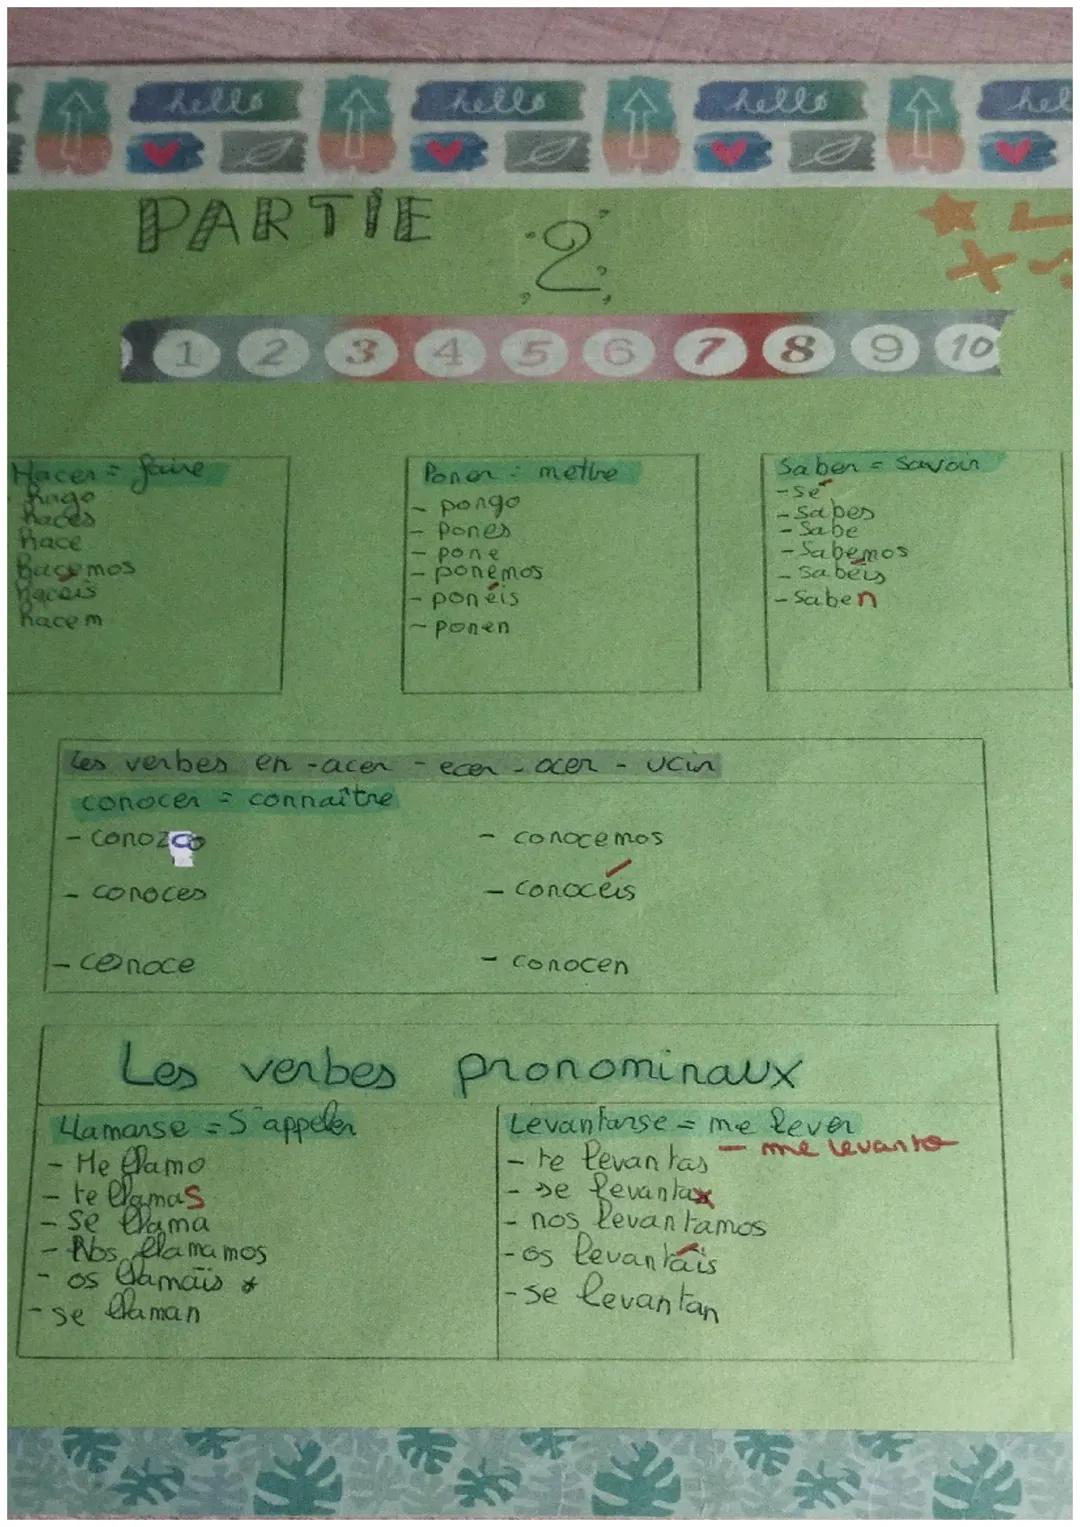 hello hello hello hel
PARTIE 2
1 2 3 4 5 6 7 8 9 10
Hacer = faire
hago
haces
hace
hacemos
haceis
hacem
Poner = mettre
- pongo
- pones
- pone
- ponemos
- ponéis
- ponen
Saber = savoir
- sé
- sabes
- sabe
- sabemos
- sabéis
- saben
Les verbes en -acer - ecer - ocer - ucir
conocer = connaître
- conozco
- conoces
- conoce
- conocemos
- conocéis
- conocen
Les verbes pronominaux
Llamarse = S'appeler
- Me llamo
- te llamas
- Se llama
- Nos llamamos
- os llamaïs *
- se llaman
Levantarse = me lever
- me levanto
- te levantas
- se levanta
- nos levantamos
- os levantáis
- se levantan